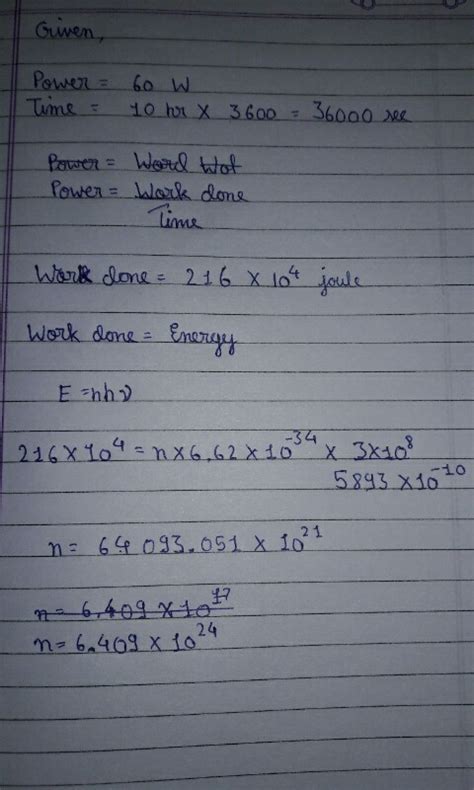 Given,
Power = 60 W
Time = 10 hr × 3600 = 36000 sec
Power = Word Wot
Power = Work done
Time
Work done = 216 × 10⁴ joule
Work done = Energy
E = nhν
216 × 10⁴ = n × 6.62 × 10⁻³⁴ × 3×10⁸
5893 × 10⁻¹⁰
n = 64093.051 × 10²¹
n = 6.409 × 10¹⁷
n = 6.409 × 10²⁴